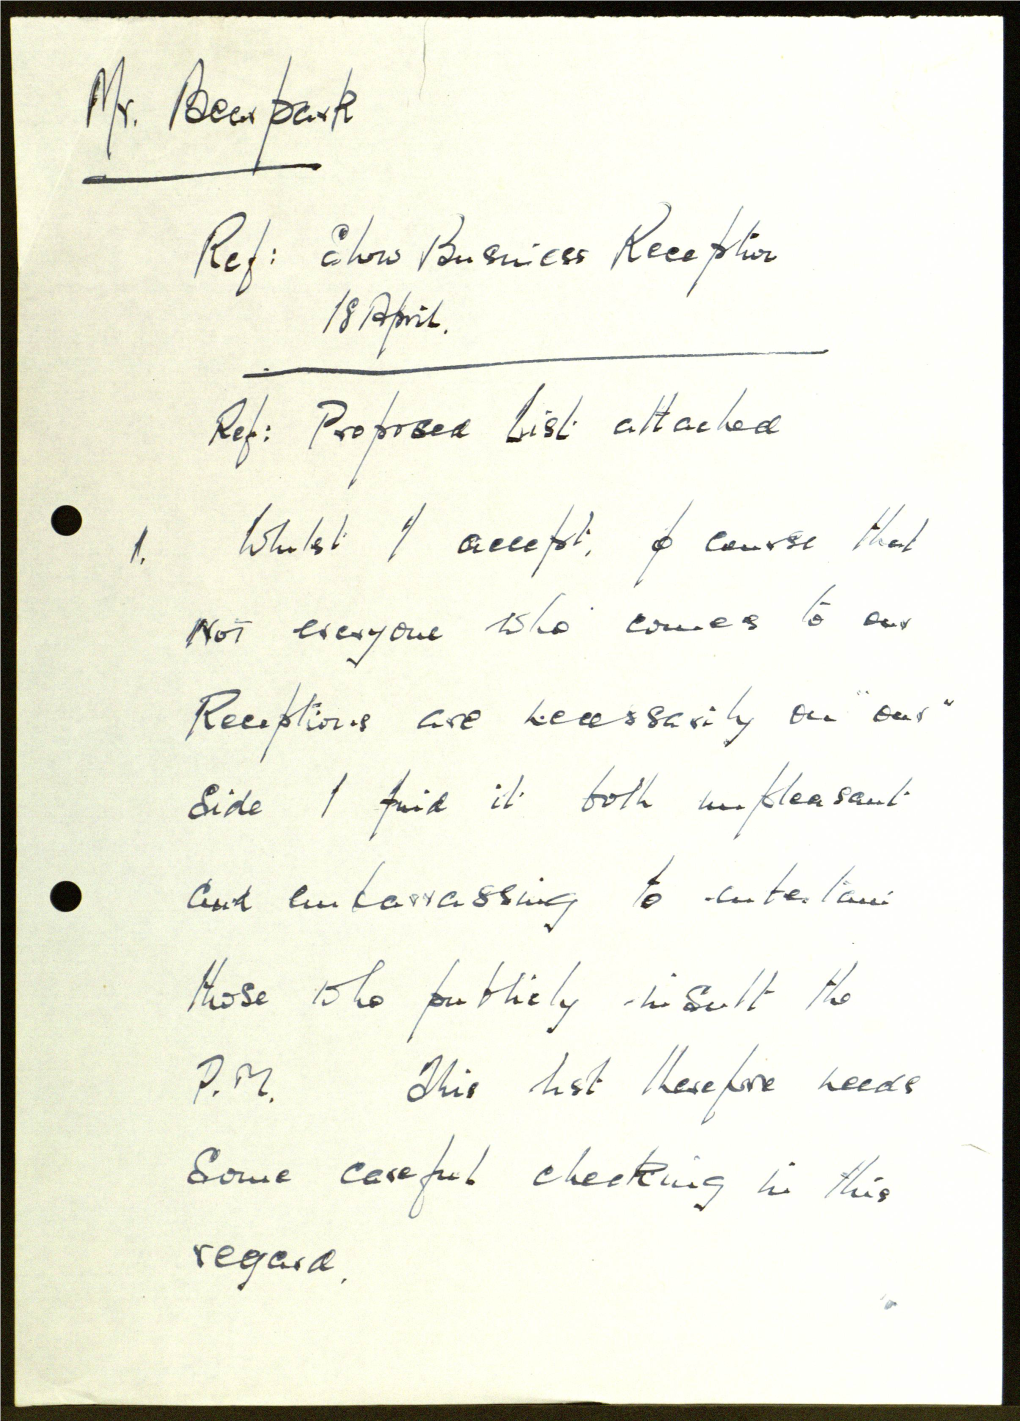 Mr. Bearpark
Ref: Show Business Reception
18 April.
Ref: Proposed List attached
1. Whilst I accept, of course that
Not everyone who comes to our
Receptions are necessarily on "our"
Side I find it both unpleasant
and embarrassing to entertain
those who publicly insult the
P.M. This list therefore needs
Some careful checking in this
regard.